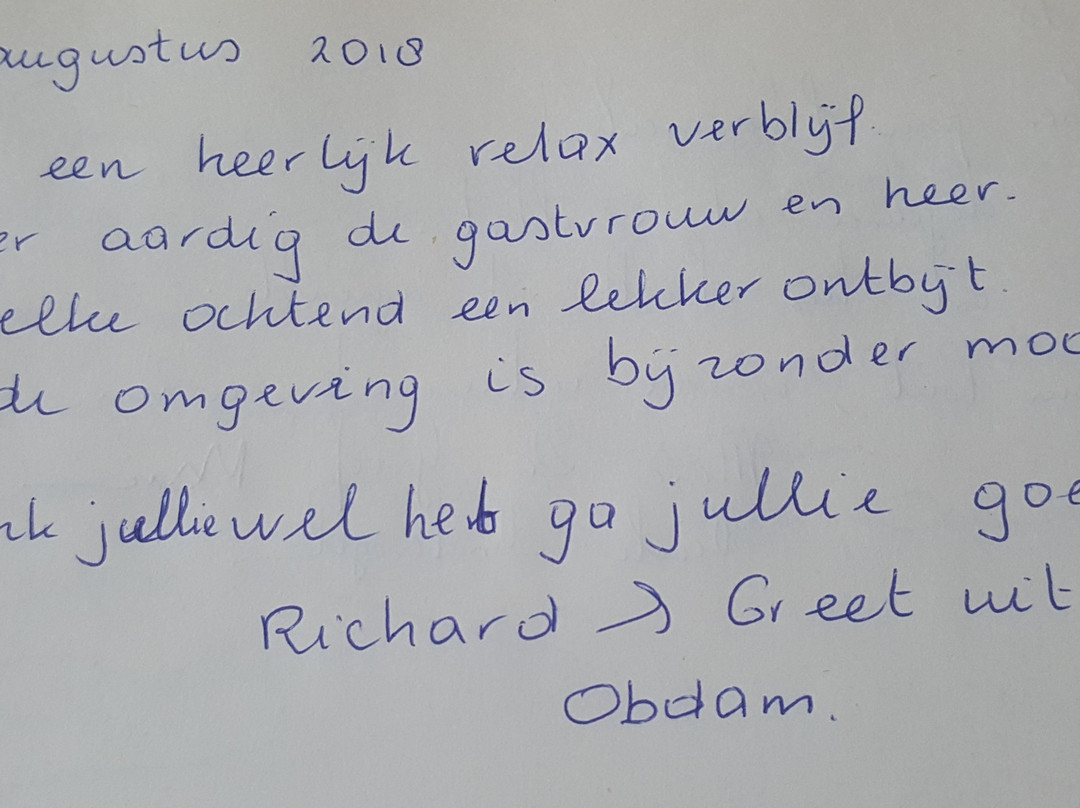 augustus 2018
een heerlijk relax verblijf.
er aardig de gastvrouw en heer.
elke ochtend een lekker ontbijt.
de omgeving is bijzonder moo
nk jullie wel het ga jullie goe
Richard & Greet uit
Obdam.